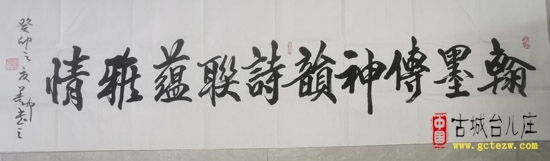 翰墨傳神韻詩聯蘊雅情
癸卯之夏
中国
古城台儿庄
www.gctezw.com